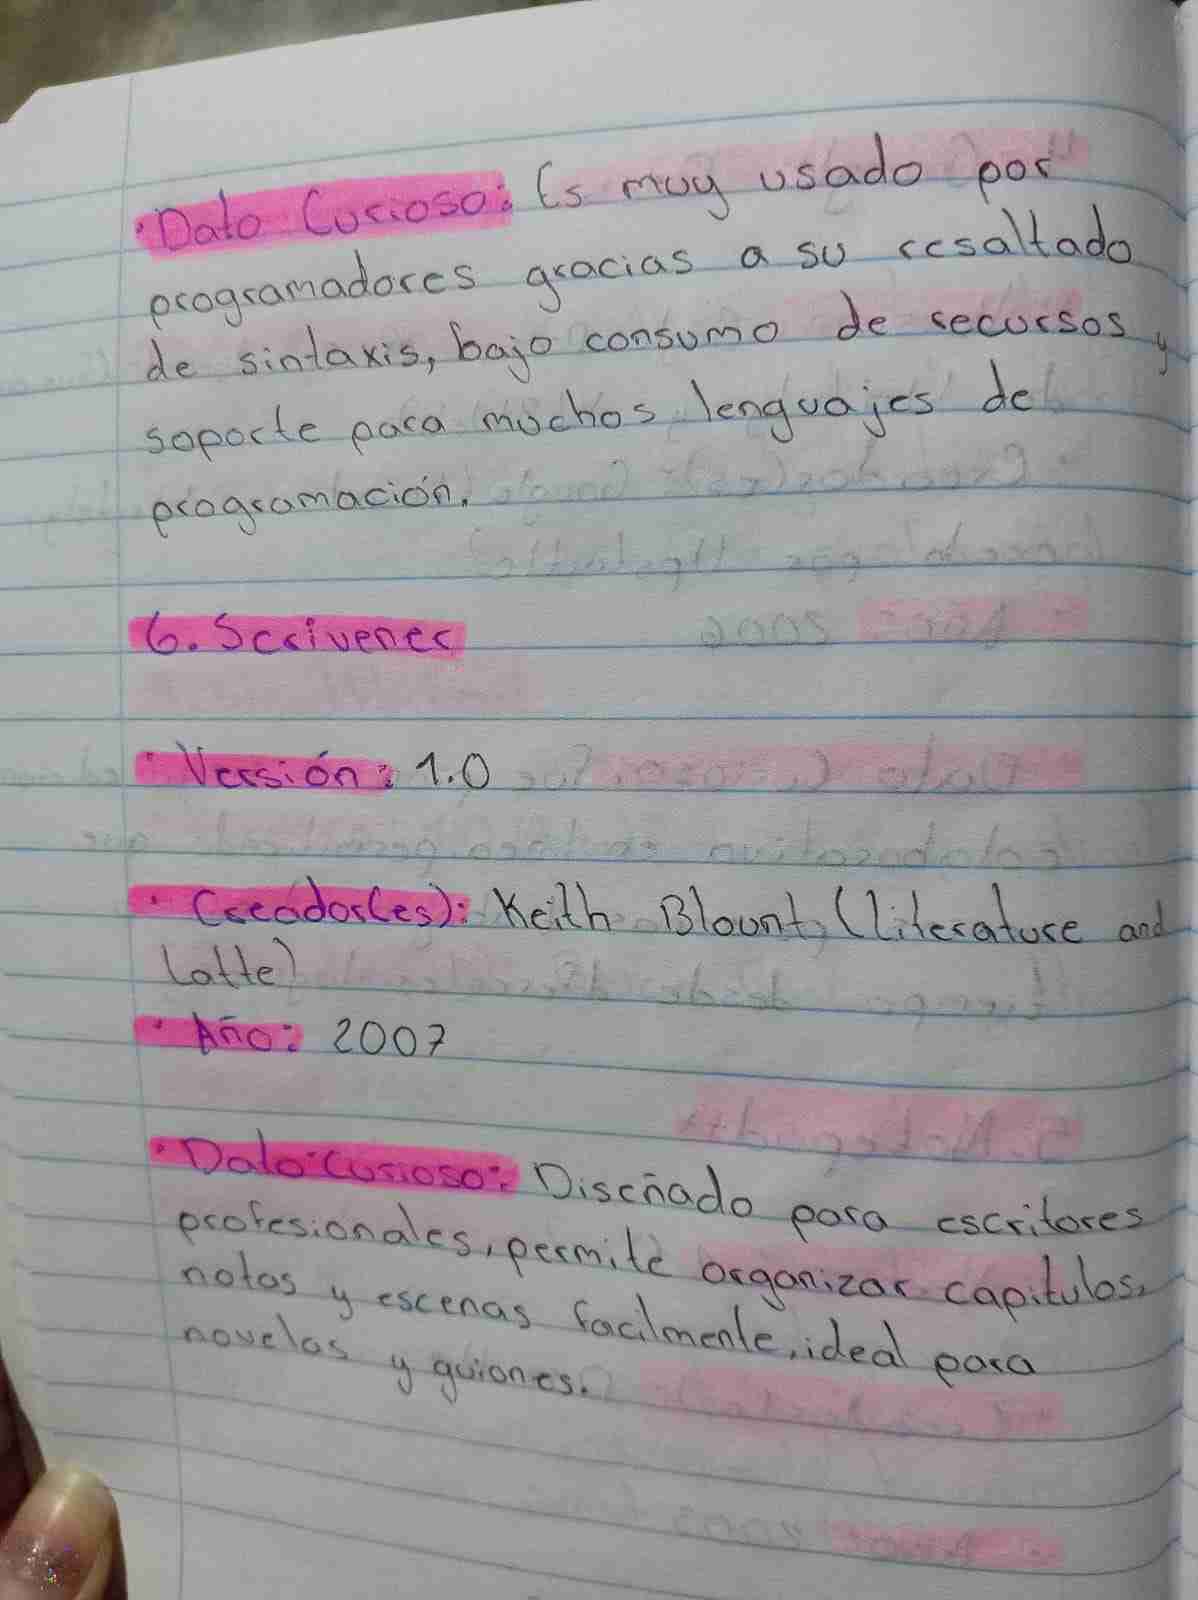 • Dato Curioso: Es muy usado por
programadores gracias a su resaltado
de sintaxis, bajo consumo de recursos y
soporte para muchos lenguajes de
programación.
6. Scrivener
• Versión: 1.0
• Creador(es): Keith Blount (literature and
latte)
• Año: 2007
• Dato Curioso: Diseñado para escritores
profesionales, permite organizar capitulos,
notas y escenas facilmente, ideal para
novelas y guiones.